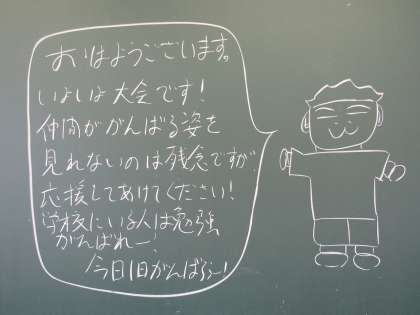 おはようございます。
いよいよ大会です！
仲間ががんばる姿を
見れないのは残念ですが
応援してあげてください！
学校にいる人は勉強
がんばれー！
今日1日がんばろう！